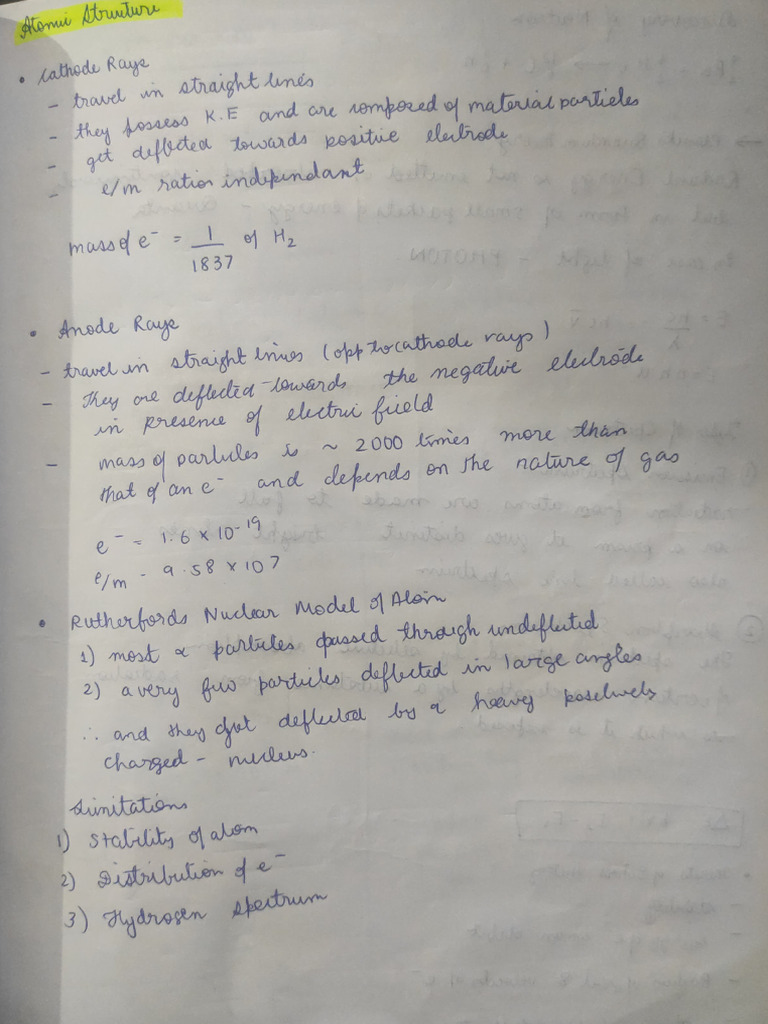 Atomic Structure
• Cathode Rays
- travel in straight lines
- they possess K.E and are composed of material particles
- get deflected towards positive electrode
- e/m ratior independant
mass of e⁻ = 1/1837 of H₂
• Anode Rays
- travel in straight lines (opp to cathode rays)
- They are deflected towards the negative electrode
in presence of electric field
- mass of particles is ~ 2000 times more than
that of an e⁻ and depends on the nature of gas
e⁻ = 1.6 × 10⁻¹⁹
e/m - 9.58 × 10⁷
• Rutherfords Nuclear Model of Atom
1) most α particles passed through undeflected
2) a very few particles deflected in large angles
∴ and they got deflected by a heavy positively
charged - nucleus.
Limitations
1) Stability of atom
2) Distribution of e⁻
3) Hydrogen Spectrum